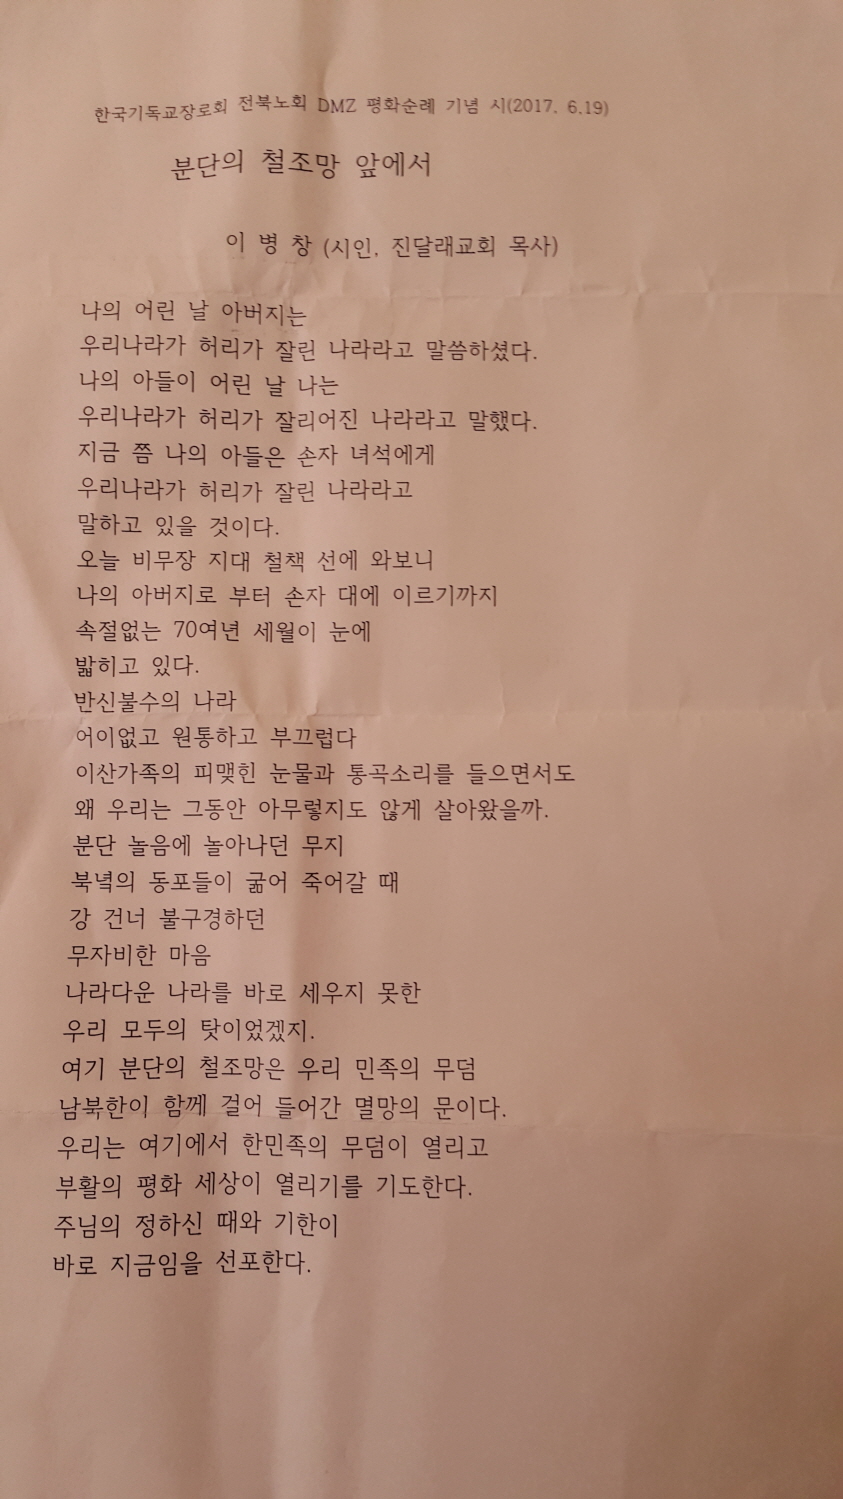 한국기독교장로회 전북노회 DMZ 평화순례 기념 시(2017. 6.19)
분단의 철조망 앞에서
이 병 창 (시인, 진달래교회 목사)
나의 어린 날 아버지는
우리나라가 허리가 잘린 나라라고 말씀하셨다.
나의 아들이 어린 날 나는
우리나라가 허리가 잘리어진 나라라고 말했다.
지금 쯤 나의 아들은 손자 녀석에게
우리나라가 허리가 잘린 나라라고
말하고 있을 것이다.
오늘 비무장 지대 철책 선에 와보니
나의 아버지로 부터 손자 대에 이르기까지
속절없는 70여년 세월이 눈에
밟히고 있다.
반신불수의 나라
어이없고 원통하고 부끄럽다
이산가족의 피맺힌 눈물과 통곡소리를 들으면서도
왜 우리는 그동안 아무렇지도 않게 살아왔을까.
분단 놀음에 놀아나던 무지
북녘의 동포들이 굶어 죽어갈 때
강 건너 불구경하던
무자비한 마음
나라다운 나라를 바로 세우지 못한
우리 모두의 탓이었겠지.
여기 분단의 철조망은 우리 민족의 무덤
남북한이 함께 걸어 들어간 멸망의 문이다.
우리는 여기에서 한민족의 무덤이 열리고
부활의 평화 세상이 열리기를 기도한다.
주님의 정하신 때와 기한이
바로 지금임을 선포한다.